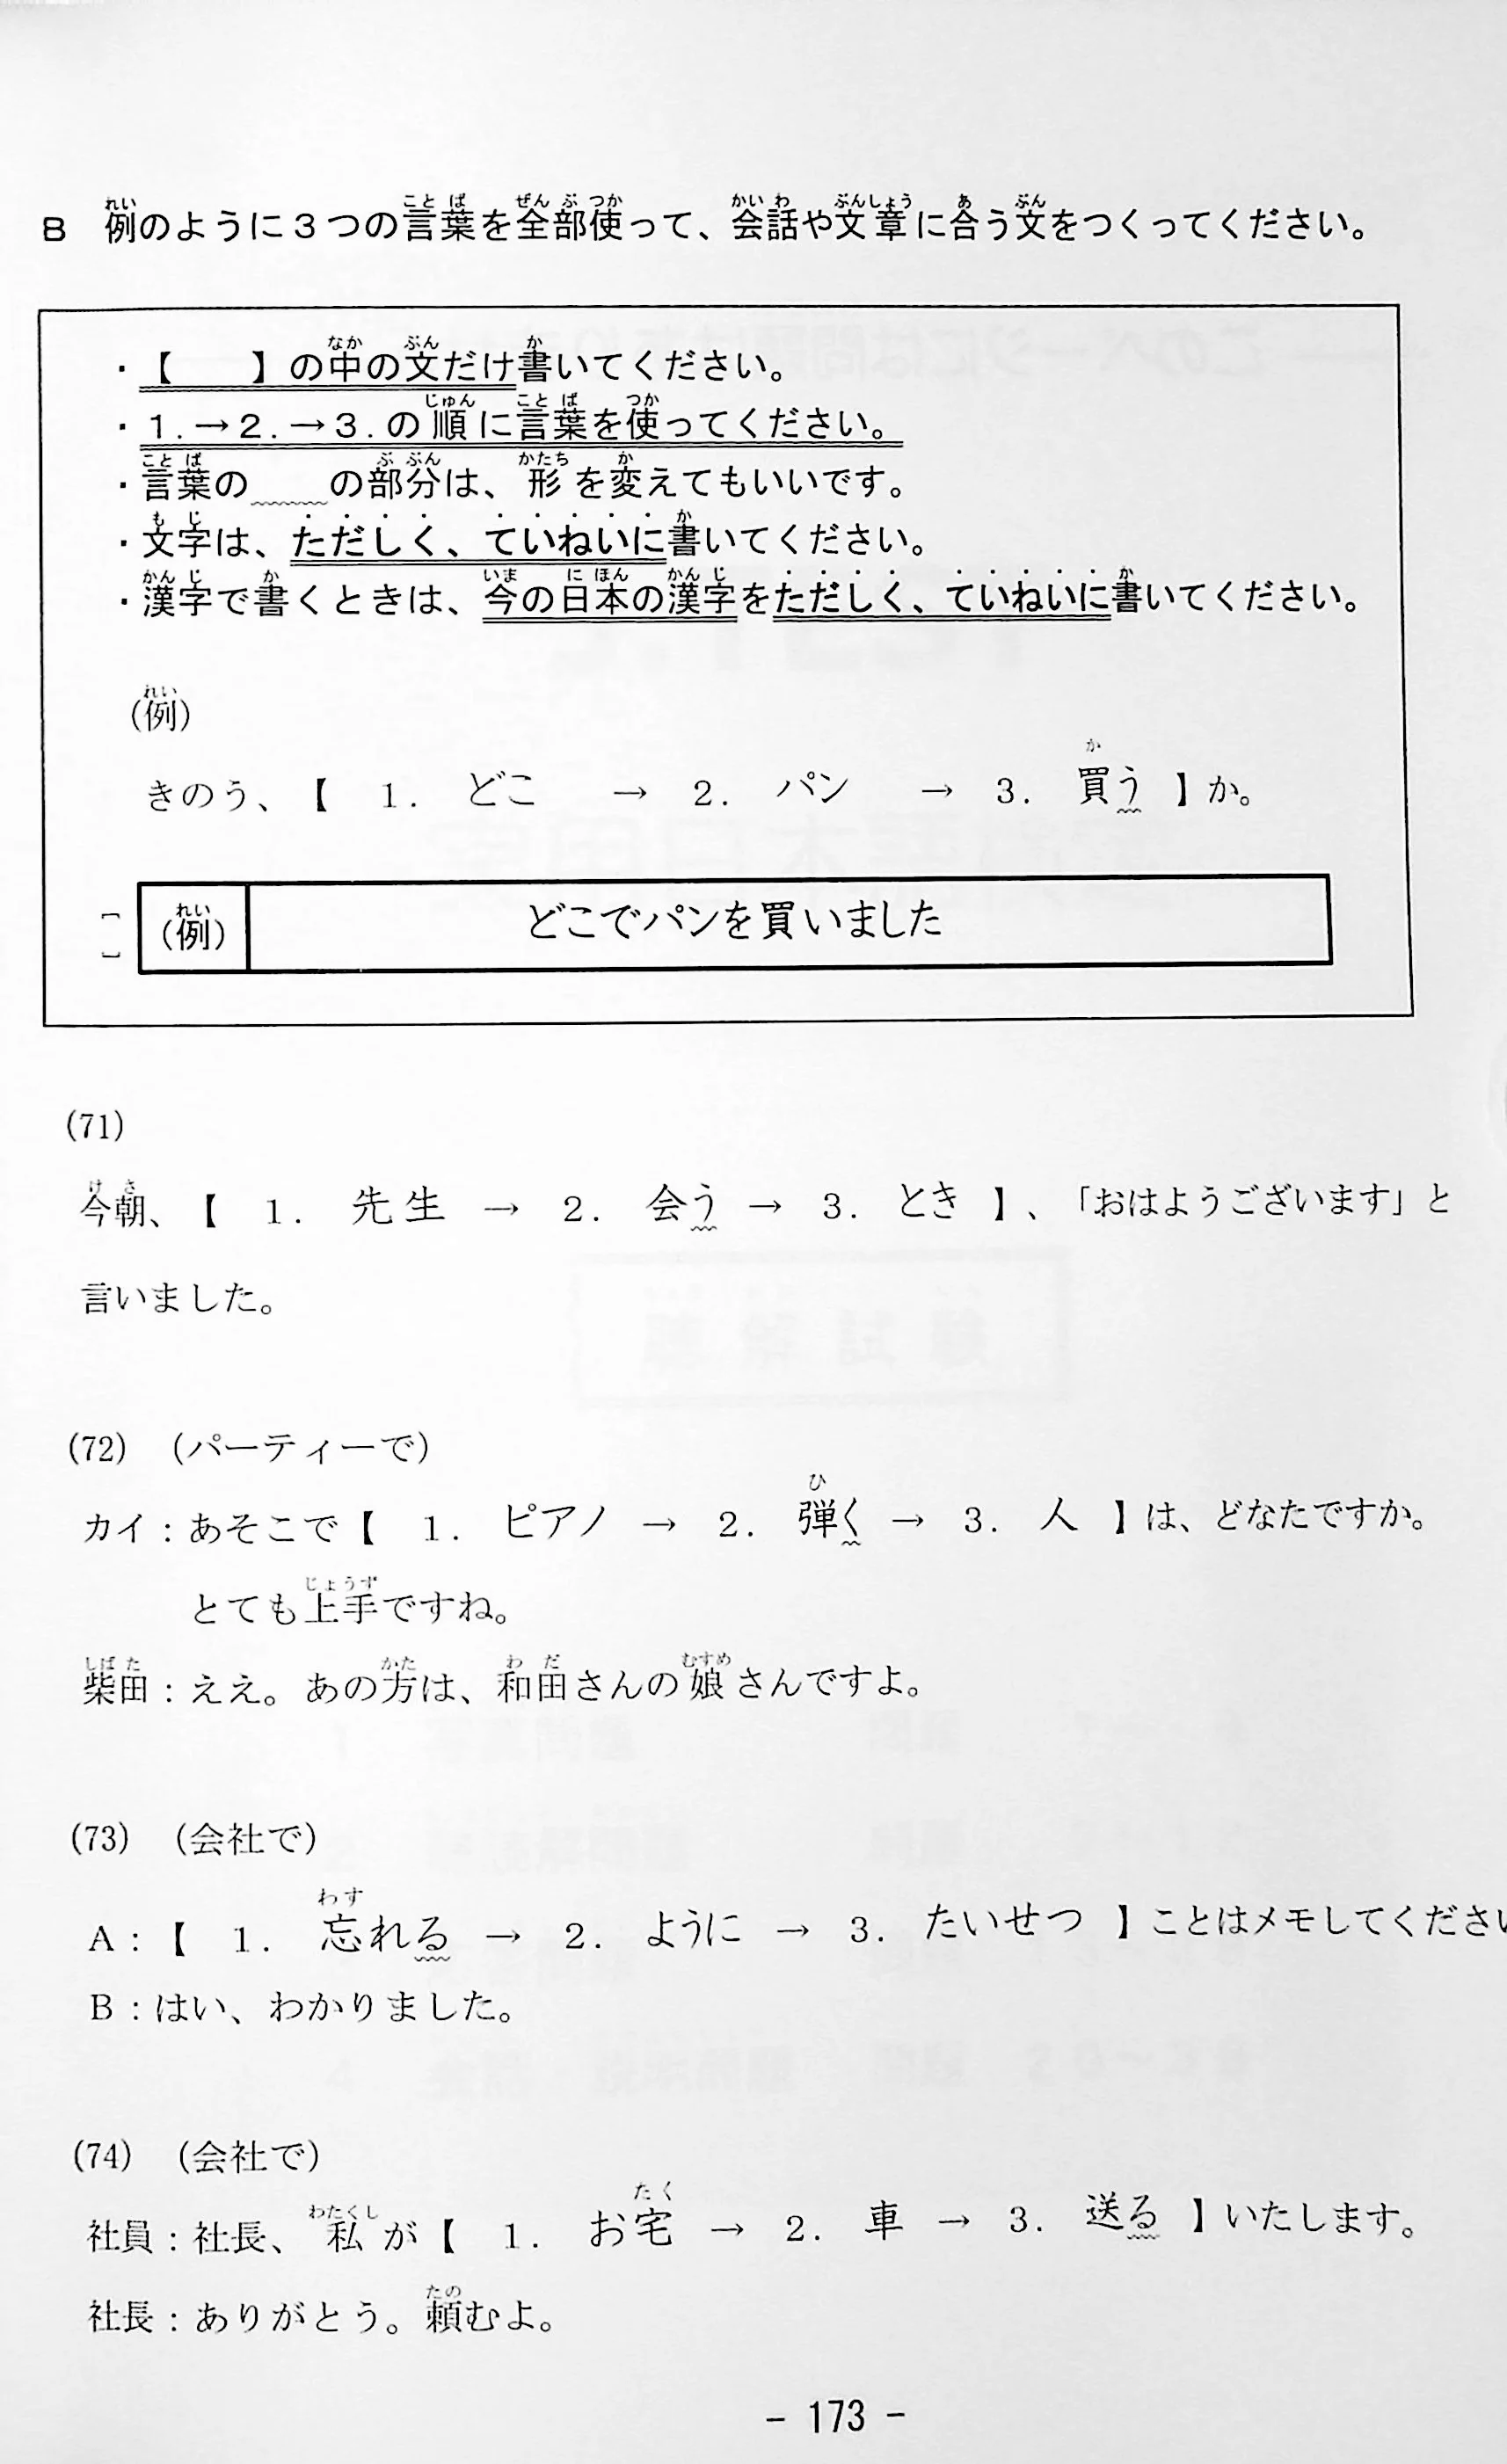 B 例のように3つの言葉を全部使って、会話や文章に合う文をつくってください。
・【　　】の中の文だけ書いてください。
・1.→2.→3.の順に言葉を使ってください。
・言葉の＿＿の部分は、形を変えてもいいです。
・文字は、ただしく、ていねいに書いてください。
・漢字で書くときは、今の日本の漢字をただしく、ていねいに書いてください。
(例)
きのう、【 1. どこ → 2. パン → 3. 買う 】か。
(例) どこでパンを買いました
(71)
今朝、【 1. 先生 → 2. 会う → 3. とき 】、「おはようございます」と
言いました。
(72) (パーティーで)
カイ：あそこで【 1. ピアノ → 2. 弾く → 3. 人 】は、どなたですか。
とても上手ですね。
柴田：ええ。あの方は、和田さんの娘さんですよ。
(73) (会社で)
A：【 1. 忘れる → 2. ように → 3. たいせつ 】ことはメモしてくださ
B：はい、わかりました。
(74) (会社で)
社員：社長、私が【 1. お宅 → 2. 車 → 3. 送る 】いたします。
社長：ありがとう。頼むよ。
- 173 -